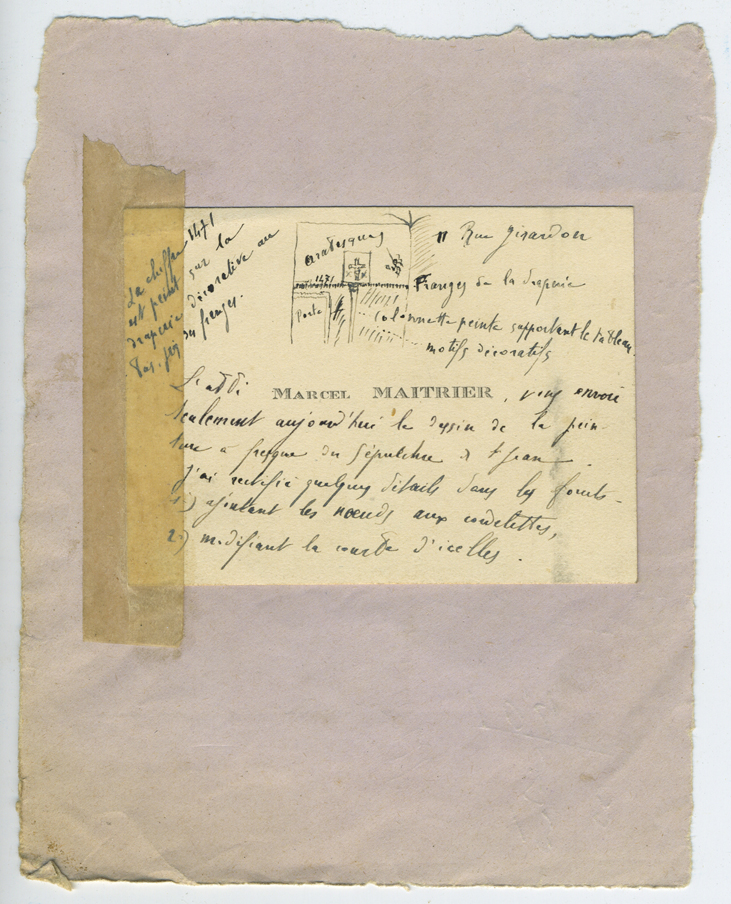 Le chiffre 1471
est peint sur la
draperie décorative au
bas. des franges.
arabesques
1471
Porte
11 Rue Girardon
Franges de la draperie
Colonnette peinte supportant le tableau.
motifs décoratifs
MARCEL MAITRIER, vous envoie
seulement aujourd'hui le dessin de la pein-
ture à fresque du Sépulchre de St Jean.
J'ai rectifié quelques détails dans les fonds
1°) ajoutant les nœuds aux cordelettes,
2°) modifiant la courbe d'icelles.